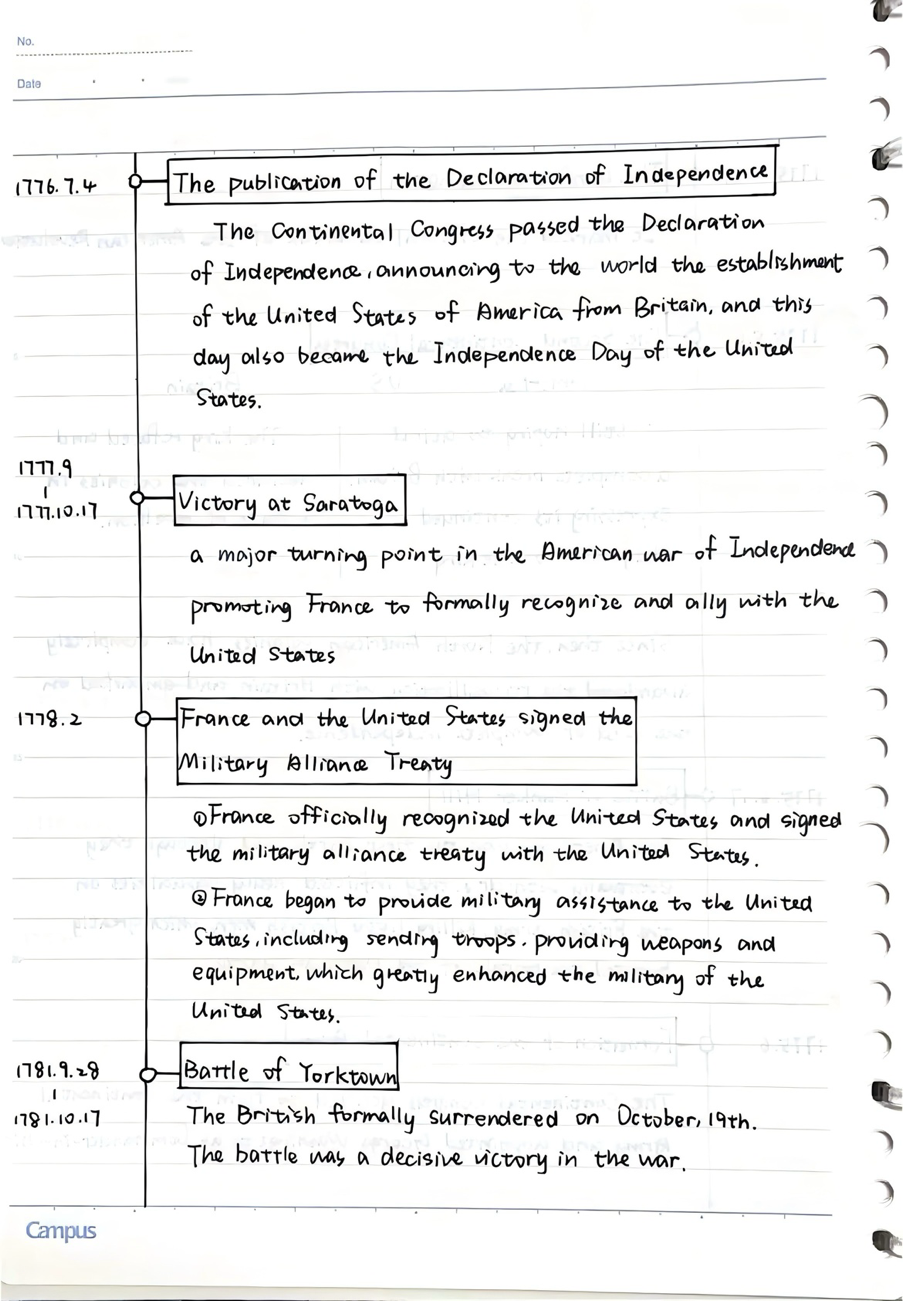 No.
Date
1776.7.4
The publication of the Declaration of Independence
The Continental Congress passed the Declaration
of Independence, announcing to the world the establishment
of the United States of America from Britain, and this
day also became the Independence Day of the United
States.
1777.9
1777.10.17
Victory at Saratoga
a major turning point in the American war of Independence
promoting France to formally recognize and ally with the
United States
1778.2
France and the United States signed the
Military Alliance Treaty
①France officially recognized the United States and signed
the military alliance treaty with the United States.
②France began to provide military assistance to the United
States, including sending troops. providing weapons and
equipment, which greatly enhanced the military of the
United States.
1781.9.28
1781.10.17
Battle of Yorktown
The British formally surrendered on October, 19th.
The battle was a decisive victory in the war.
Campus